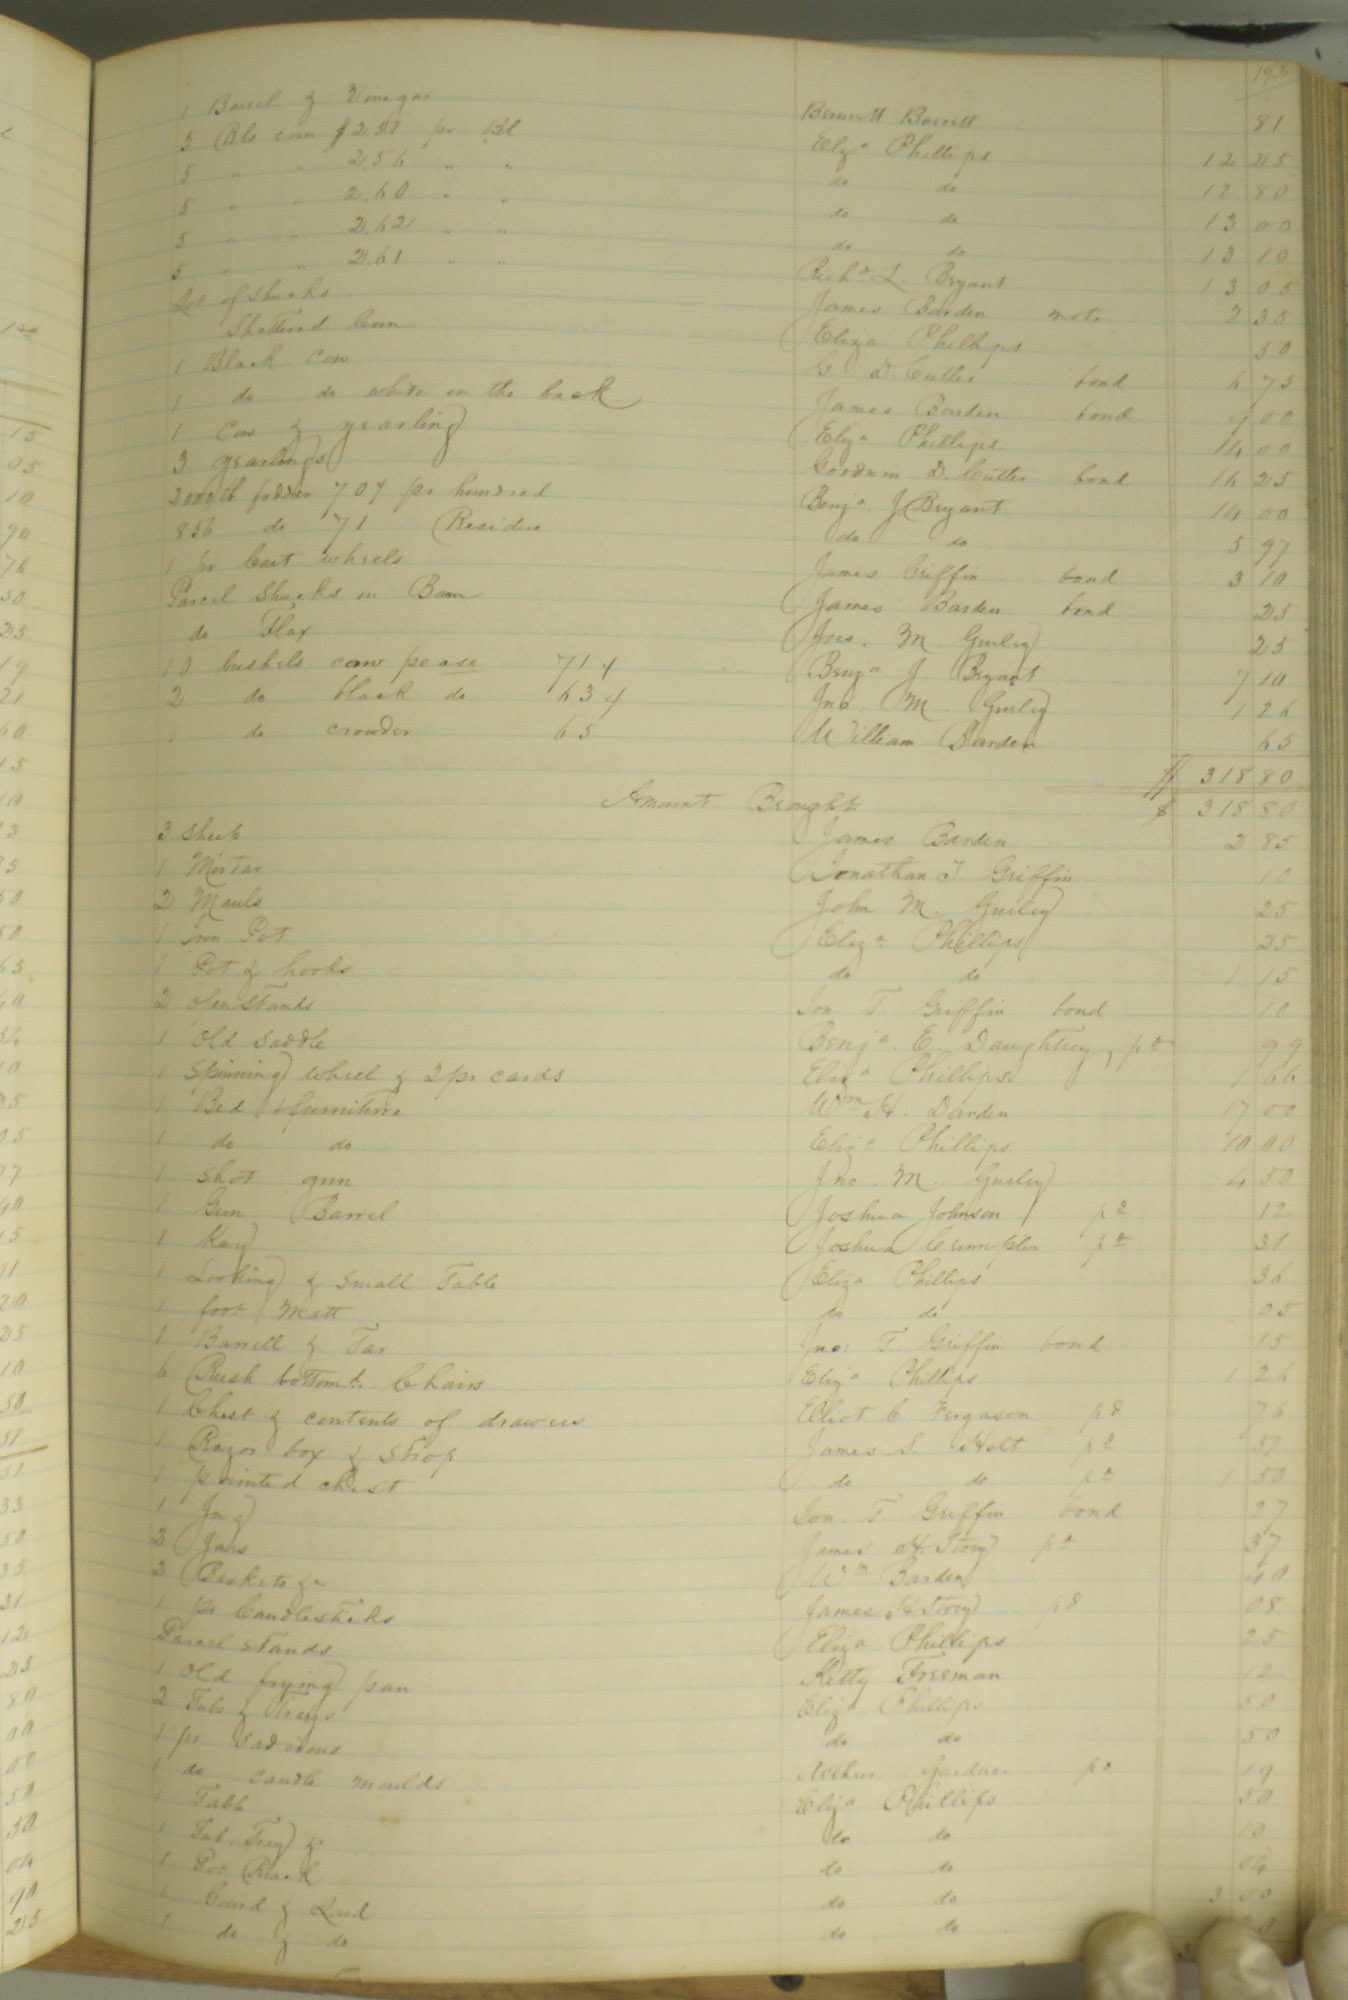 192
1 Barrel & Vinegar Bennett Barrett 81
5 Bls corn $2 57 pr Bl Eliza Phillips 12 25
5 " " 2.56 " " do do 12 80
5 " " 2.60 " " do do 13 00
5 " " 2.62 " " do do 13 10
5 " " 2.61 " " Richd L Bryant 13 05
Lot of Shucks James Barden not. 2 35
Shattered Corn Eliza Phillips 50
1 Black Cow G D Cutter bond 6 75
1 do do white on the back James Barden bond 9 00
1 Cow & yearling Eliza Phillips 14 00
3 yearlings Goodwin D. Cutter bond 16 25
2000 lb fodder 70 ¢ pr hundred Benja J Bryant 14 00
836 do 71 Residue do do 5 97
1 pr Cart wheels James Griffin bond 3 10
Parcel Shucks in Barn James Barden bond 25
do Flax Jno. M. Gurley 25
10 bushels cow pease 71 ¢ Benja J Bryant 7 10
2 do black do 63 ¢ Jno. M. Gurley 1 26
1 do crowder 65 William Barden 65
$ 318 80
Amount Brought $ 318 80
3 sheep James Barden 2 85
1 Mortar Jonathan T Griffin 10
2 Mauls John M. Gurley 25
1 Iron Pot Eliza Phillips 25
1 Pot & hooks do do 1 15
2 stands Jon T. Griffin bond 10
1 Old Saddle Benja E. Daughtrey, pd 99
1 Spinning wheel & 2 pr cards Eliza Phillips 1 66
1 Bed & furniture Wm H. Darden 17 00
1 do do Eliza Phillips 10 00
1 Shot gun Jno. M. Gurley 4 50
1 Gun Barrel Joshua Johnson pd 12
1 Keg Joshua Crumpler pd 31
1 Looking & Small Table Eliza Phillips 36
1 foot Matt do do 05
1 Barrell & Tar Jno: T. Griffin bond 15
6 Rush bottomd. Chairs Eliza Phillips 1 26
1 Chest & contents of drawers Eliot C Ferguson pd 76
1 Razor box & Strop James S. Holt pd 51
1 painted chest do do pd 1 50
1 Jug Jon. T. Griffin bond 27
2 Jars James H. Story pd 37
2 Baskets &c Wm Barden 40
1 pr Candlesticks James H. Story pd 08
Parcel stands Eliza Phillips 25
1 Old frying pan Kitty Freeman 12
2 Tubs & Trays Eliza Phillips 50
1 pr Sad irons do do 50
1 do candle moulds Arthur Gardner pd 19
1 Table Eliza Phillips 50
1 Tub. Tray &c do do 10
1 Pot Rack do do 04
1 Gourd & Lard do do 3 00
1 do & do do do